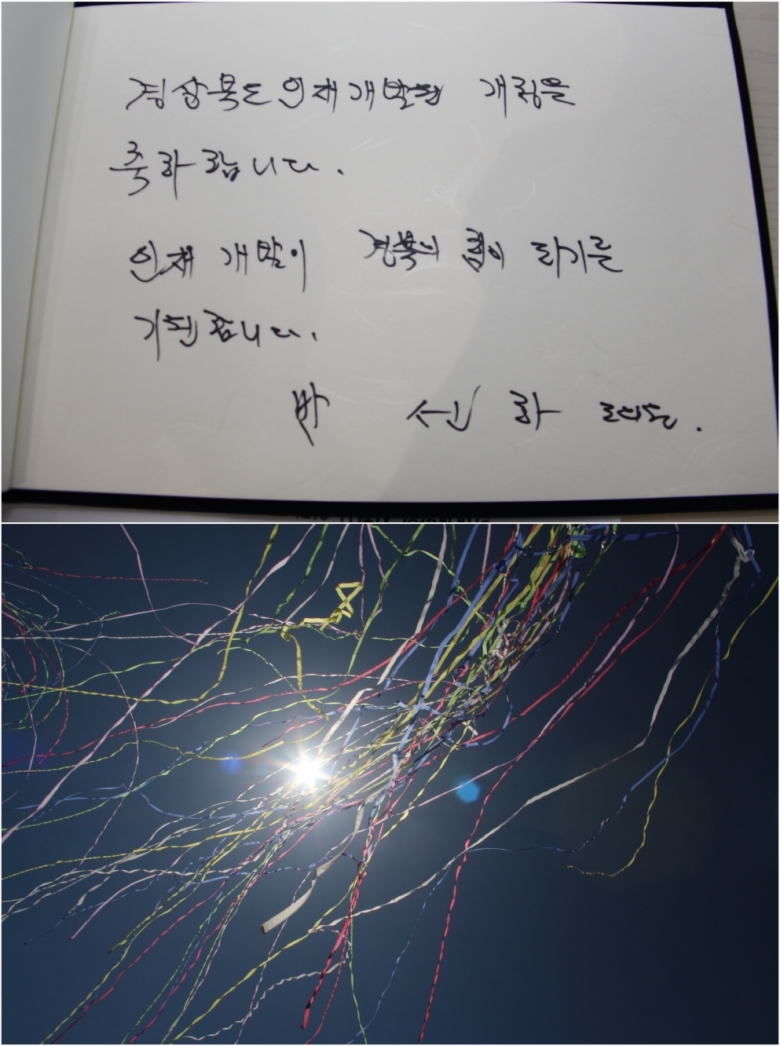 경상북도 인재개발원
축하합니다.
인재 개발이 경북의 힘이 되기를
기원합니다.
박 신